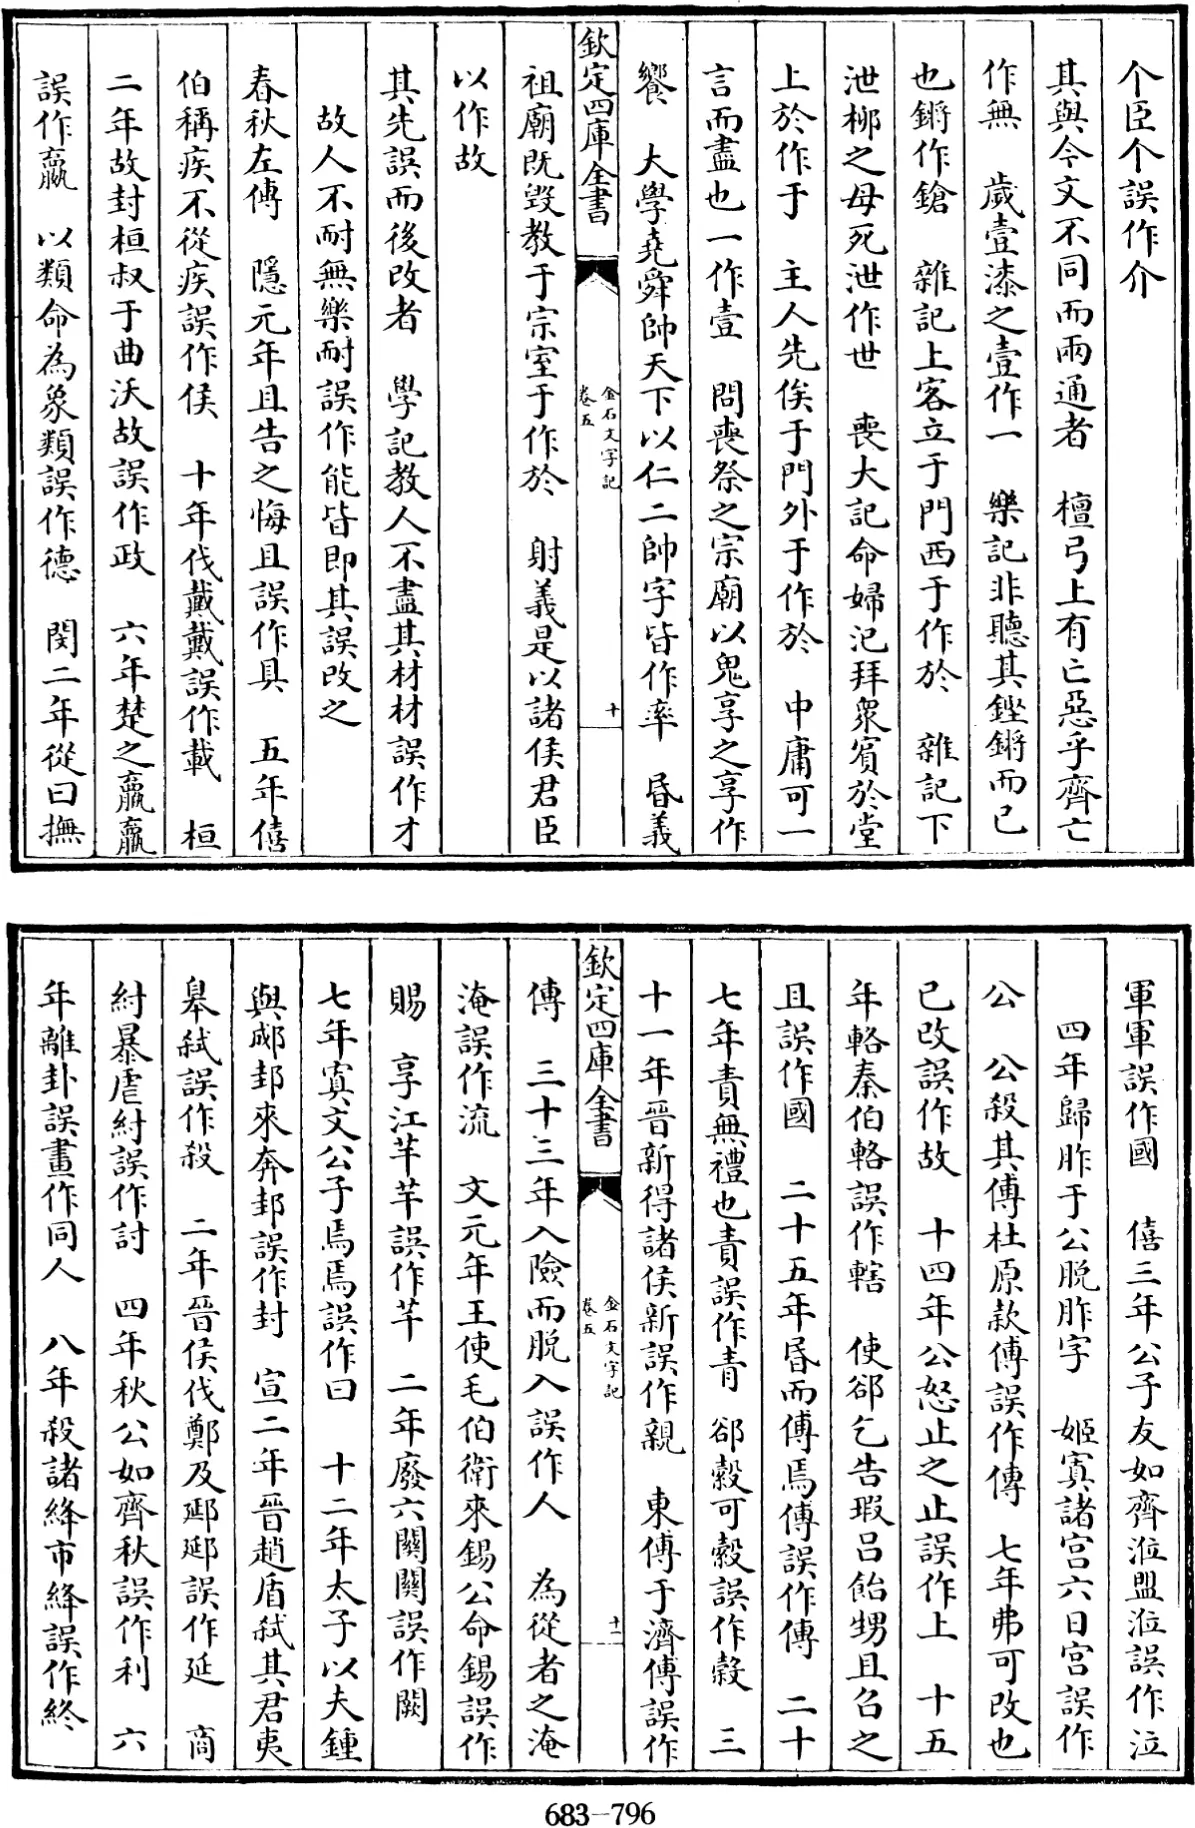 个臣个誤作介
其與今文不同而兩通者　檀弓上有亡惡乎齊亡
作無　歲壹漆之壹作一　樂記非聽其鏗鏘而已
也鏘作鎗　雜記上客立于門西于作於　雜記下
泄柳之母死泄作世　喪大記命婦氾拜眾賓於堂
上於作于　主人先俟于門外于作於　中庸可一
言而盡也一作壹　問喪祭之宗廟以鬼享之享作
饗　大學堯舜帥天下以仁二帥字皆作率　昏義
欽定四庫全書
金石文字記
卷五
十
祖廟既毀教于宗室于作於　射義是以諸侯君臣
以作故
其先誤而後改者　學記教人不盡其材材誤作才
故人不耐無樂耐誤作能皆即其誤改之
春秋左傳　隱元年且告之悔且誤作具　五年僖
伯稱疾不從疾誤作侯　十年伐戴戴誤作載　桓
二年故封桓叔于曲沃故誤作政　六年楚之羸羸
誤作嬴　以類命為象類誤作德　閔二年從曰撫
軍軍誤作國　僖三年公子友如齊涖盟涖誤作泣
四年歸胙于公脫胙字　姬寘諸宮六日宮誤作
公　公殺其傅杜原款傅誤作傳　七年弗可改也
已改誤作故　十四年公怒止之止誤作上　十五
年輅秦伯輅誤作轄　使郤乞告瑕呂飴甥且召之
且誤作國　二十五年昏而傅焉傅誤作傳　二十
七年責無禮也責誤作青　郤縠可縠誤作穀　三
十一年晉新得諸侯新誤作親　東傅于濟傅誤作
欽定四庫全書
金石文字記
卷五
十一
傳　三十三年入險而脫入誤作人　為從者之淹
淹誤作流　文元年王使毛伯衛來錫公命錫誤作
賜　享江羋羋誤作芉　二年廢六關關誤作闕
七年寘文公子焉焉誤作曰　十二年太子以夫鍾
與郕邽來奔邽誤作封　宣二年晉趙盾弒其君夷
皋弒誤作殺　二年晉侯伐鄭及郔郔誤作延　商
紂暴虐紂誤作討　四年秋公如齊秋誤作利　六
年離卦誤畫作同人　八年殺諸絳市絳誤作終
683-796